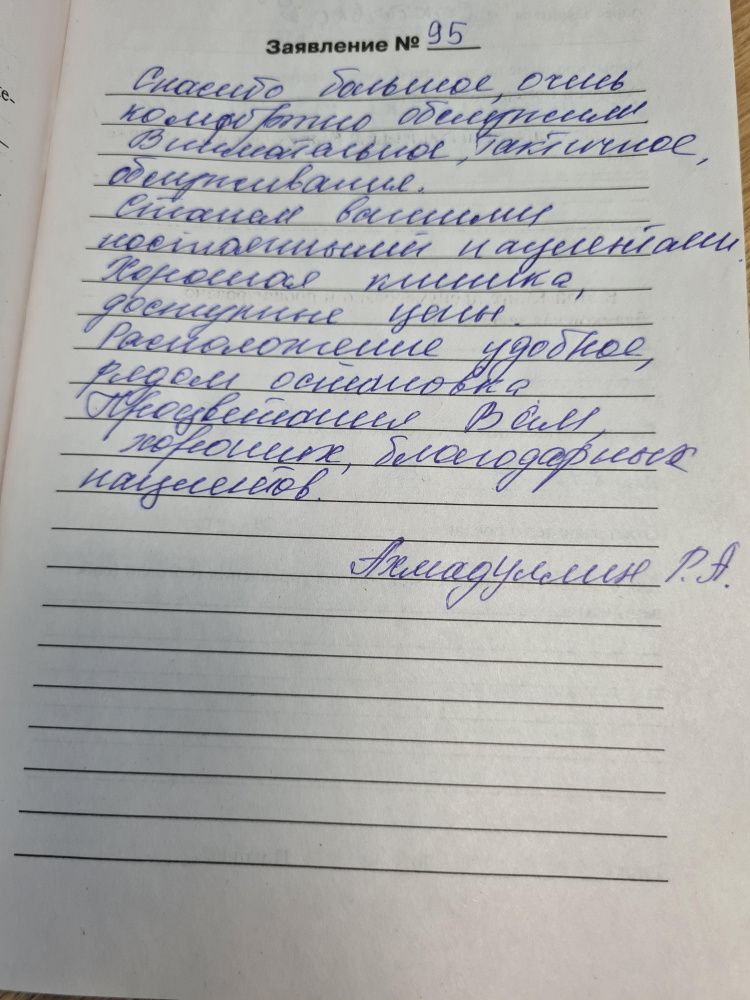 Заявление № 95
Спасибо большое, очень
комфортно обслужили
Внимательное, тактичное,
обслуживания.
Станем вашими
постоянными пациентами.
Хорошая клиника,
доступные цены.
Расположение удобное,
рядом остановка
Процветания Вам,
хороших, благодарных
пациентов.
Ахмадуллин Р.А.